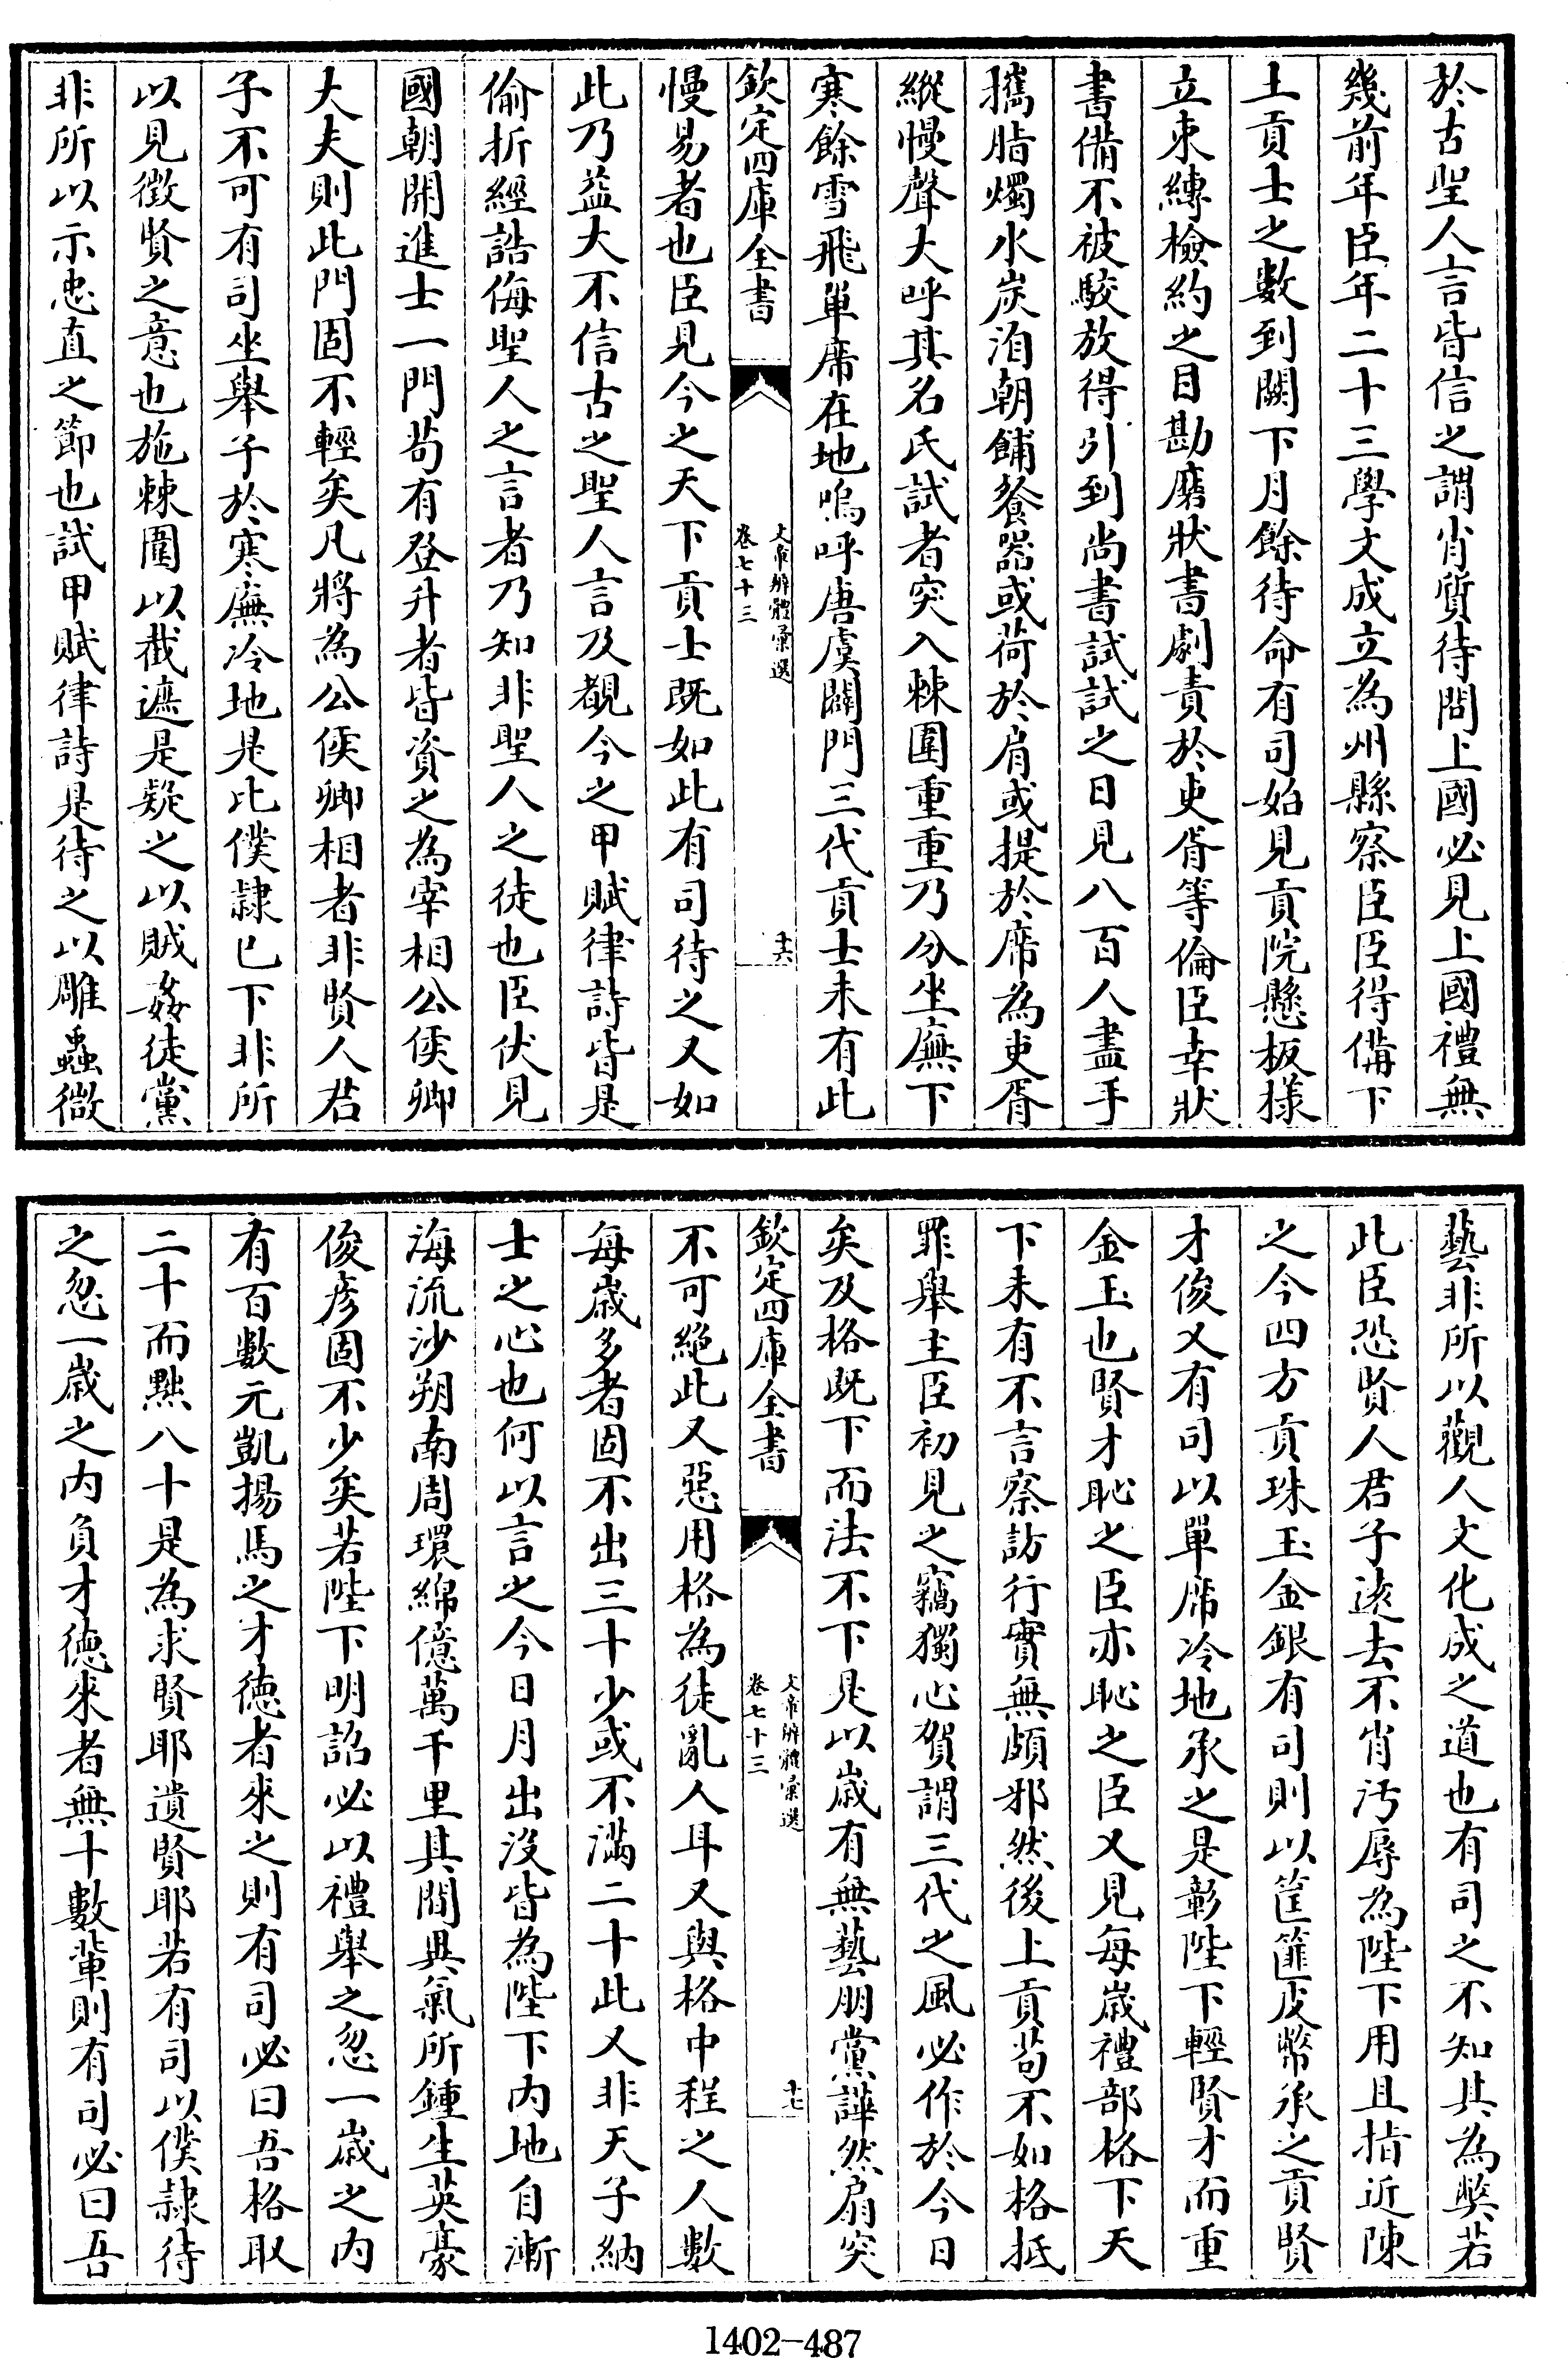 於古聖人言皆信之謂肖質待問上國必見上國禮無
幾前年臣年二十三學文成立為州縣察臣臣得備下
土貢士之數到闕下月餘待命有司始見貢院懸板樣
立束縛檢約之目勘磨狀書劇責於吏胥等倫臣幸狀
書備不被駮放得引到尚書試試之日見八百人盡手
攜脂燭水炭洎朝餔餐器或荷於肩或提於席為吏胥
縱慢聲大呼其名氏試者突入棘圍重重乃分坐廡下
寒餘雪飛單席在地嗚呼唐虞闢門三代貢士未有此
欽定四庫全書
文章辨體彙選
卷七十三
十六
慢易者也臣見今之天下貢士既如此有司待之又如
此乃益大不信古之聖人言及覩今之甲賦律詩皆是
偷折經誥侮聖人之言者乃知非聖人之徒也臣伏見
國朝開進士一門苟有登升者皆資之為宰相公侯卿
大夫則此門固不輕矣凡將為公侯卿相者非賢人君
子不可有司坐舉子於寒廡冷地是比僕隷已下非所
以見徵賢之意也施棘圍以截遮是疑之以賊姦徒黨
非所以示忠直之節也試甲賦律詩是待之以雕蟲微
藝非所以觀人文化成之道也有司之不知其為弊若
此臣恐賢人君子遠去不肖汚辱為陛下用且指近陳
之今四方貢珠玉金銀有司則以筐篚皮幣承之貢賢
才俊又有司以單席冷地承之是彰陛下輕賢才而重
金玉也賢才恥之臣亦恥之臣又見每歲禮部格下天
下未有不言察訪行實無頗邪然後上貢苟不如格抵
罪舉主臣初見之竊獨心賀謂三代之風必作於今日
矣及格既下而法不下是以歲有無藝朋黨譁然扇突
欽定四庫全書
文章辨體彙選
卷七十三
十七
不可絕此又惡用格為徒亂人耳又與格中程之人數
每歲多者固不出三十少或不滿二十此又非天子納
士之心也何以言之今日月出沒皆為陛下內地自漸
海流沙朔南周環綿億萬千里其間異氣所鍾生英豪
俊彥固不少矣若陛下明詔必以禮舉之忽一歲之內
有百數元凱揚馬之才德者來之則有司必曰吾格取
二十而黜八十是為求賢耶遺賢耶若有司以僕隷待
之忽一歲之內負才德來者無十數輩則有司必曰吾
1402-487